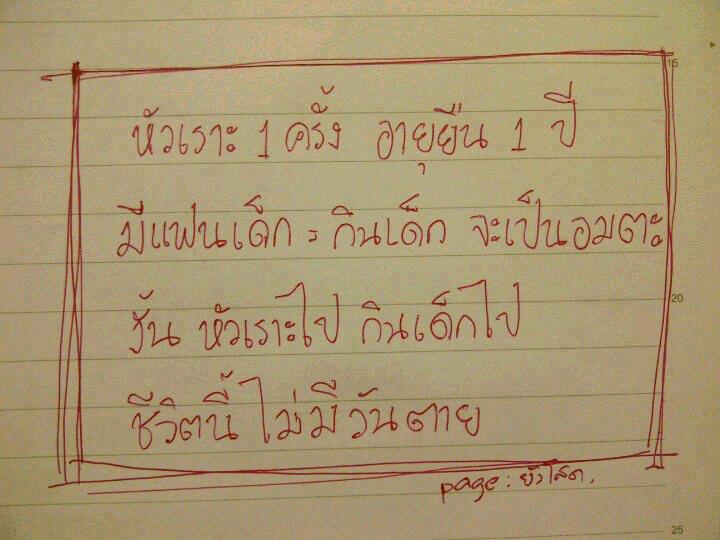 หัวเราะ 1 ครั้ง อายุยืน 1 ปี
มีแฟนเด็ก = กินเด็ก จะเป็นอมตะ
งั้น หัวเราะไป กินเด็กไป
ชีวิตนี้ ไม่มีวันตาย
page: ยังโสด.
15
20
25